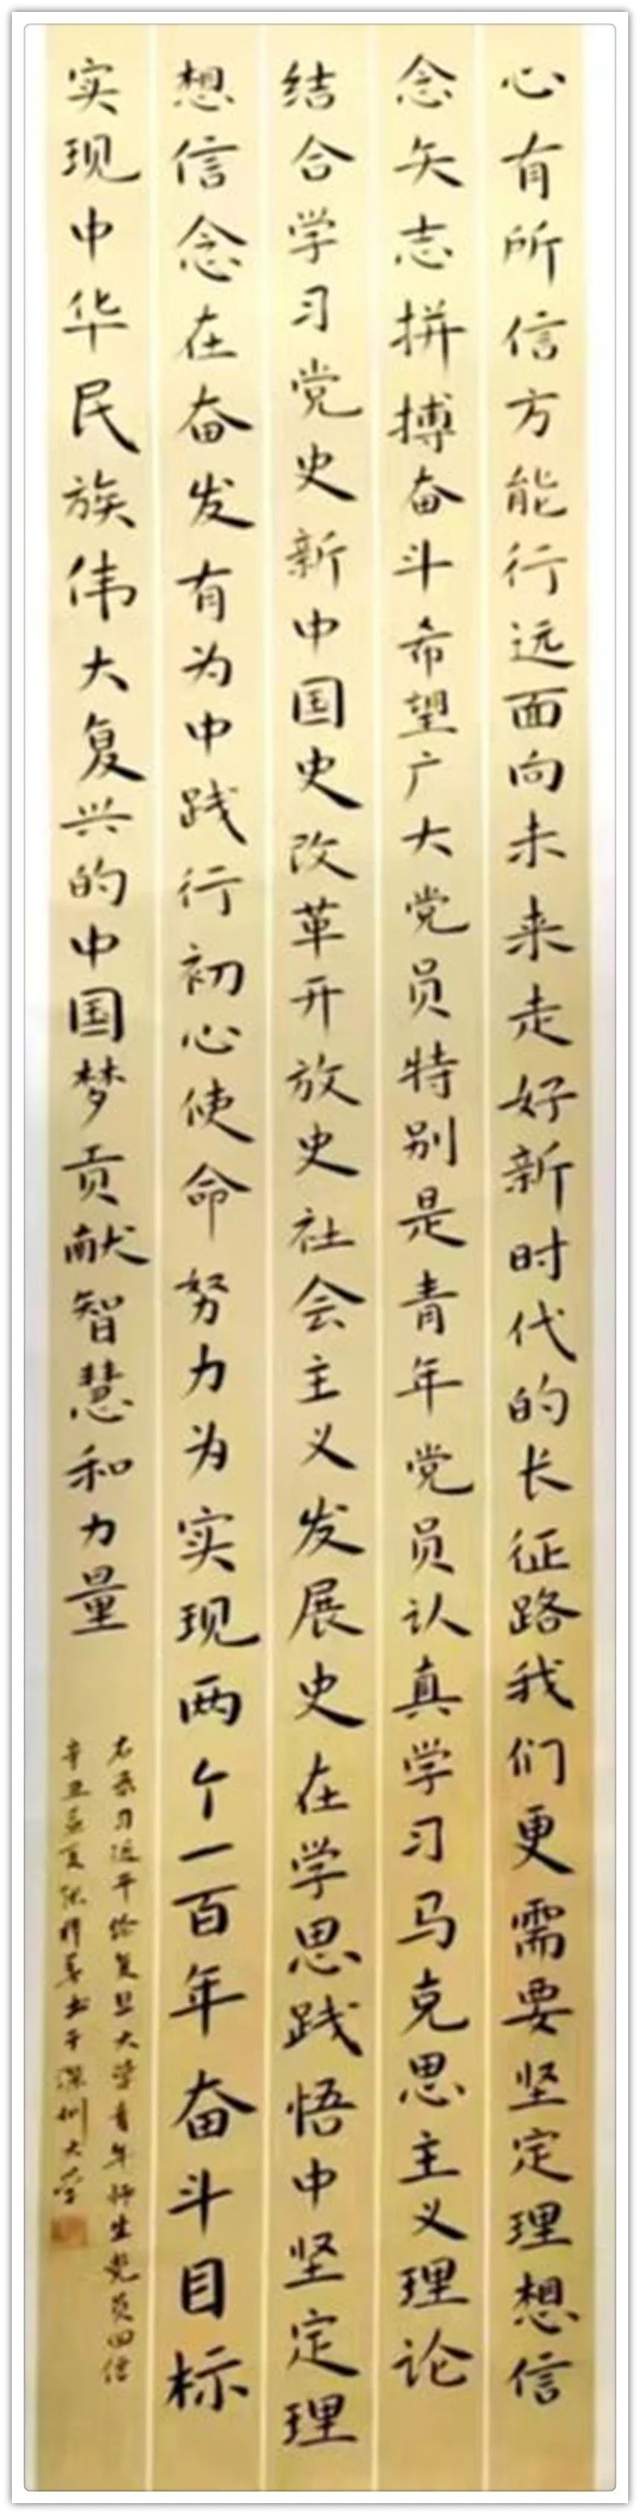 心有所信方能行远面向未来走好新时代的长征路我们更需要坚定理想信
念矢志拼搏奋斗希望广大党员特别是青年党员认真学习马克思主义理论
结合学习党史新中国史改革开放史社会主义发展史在学思践悟中坚定理
想信念在奋发有为中践行初心使命努力为实现两个一百年奋斗目标
实现中华民族伟大复兴的中国梦贡献智慧和力量
右录习近平给复旦大学青年师生党员回信
辛丑孟夏 书于深圳大学